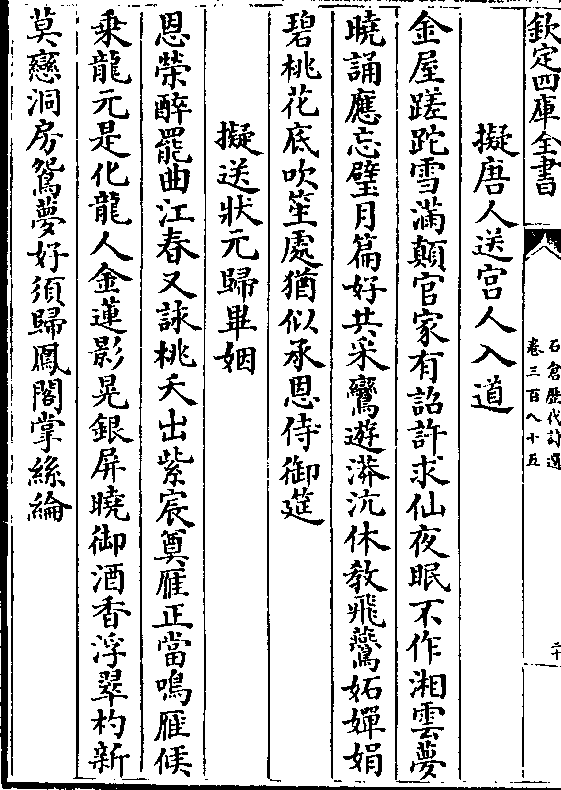 欽定四庫全書
石倉歷代詩選
卷三百八十五
二十
擬唐人送宮人入道
金屋蹉跎雪滿顛官家有詔許求仙夜眠不作湘雲夢
曉誦應忘璧月篇好共采鸞遊漭沆休教飛鷰妬嬋娟
碧桃花底吹笙處猶似承恩侍御筵
擬送狀元歸畢姻
恩榮醉罷曲江春又詠桃夭出紫宸奠雁正當鳴雁候
乗龍元是化龍人金蓮影晃銀屏曉御酒香浮翠杓新
莫戀洞房鴛夢好須歸鳳閣掌絲綸